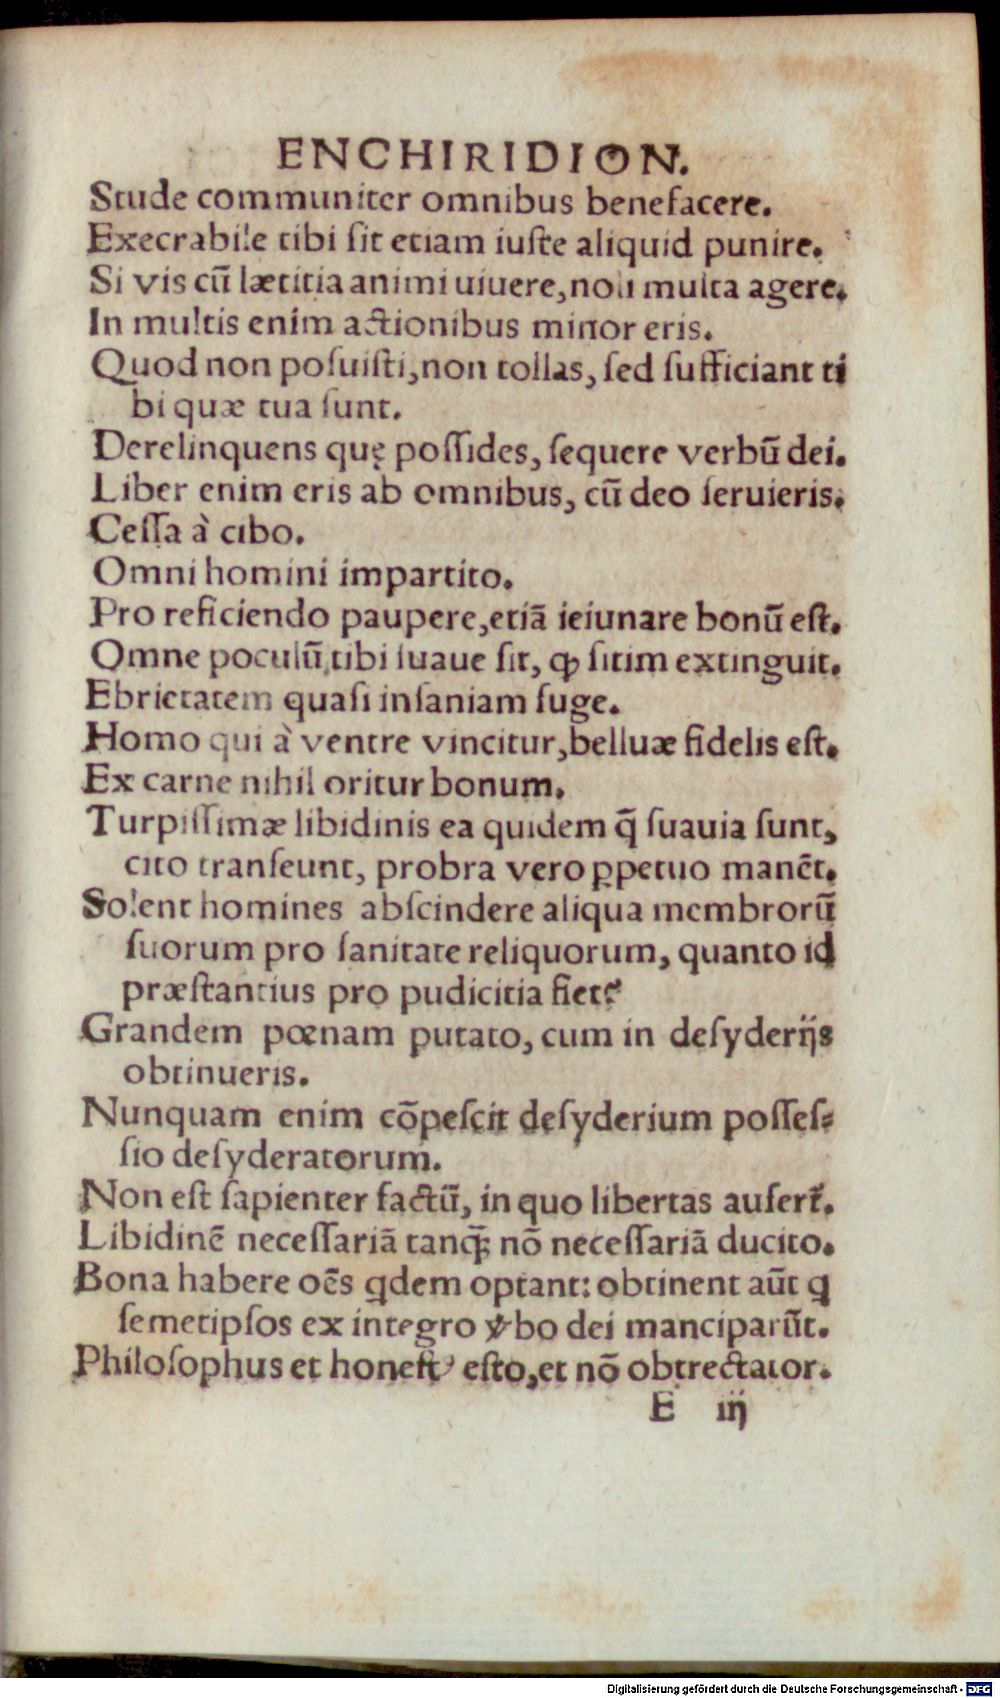 ENCHIRIDION.
Stude communiter omnibus benefacere.
Execrabile tibi sit etiam iuste aliquid punire.
Si vis cũ lætitia animi uiuere, noli multa agere.
In multis enim actionibus minor eris.
Quod non posuisti, non tollas, sed sufficiant ti
bi quæ tua sunt.
Derelinquens quę possides, sequere verbũ dei.
Liber enim eris ab omnibus, cũ deo seruieris.
Cessa à cibo.
Omni homini impartito.
Pro reficiendo paupere, etiã ieiunare bonũ est.
Omne poculũ tibi suaue sit, ꝙ sitim extinguit.
Ebrietatem quasi insaniam fuge.
Homo qui à ventre vincitur, belluæ fidelis est.
Ex carne nihil oritur bonum.
Turpissimæ libidinis ea quidem q̃ suauia sunt,
cito transeunt, probra vero ꝑpetuo manẽt.
Solent homines abscindere aliqua membrorũ
suorum pro sanitate reliquorum, quanto id
præstantius pro pudicitia fiet?
Grandem pœnam putato, cum in desyderijs
obtinueris.
Nunquam enim cõpescit desyderium posses-
sio desyderatorum.
Non est sapienter factũ, in quo libertas aufert᷑.
Libidinẽ necessariã tanq̃ꝫ nõ necessariã ducito.
Bona habere oẽs ꝗdem optant: obtinent aũt ꝗ
semetipsos ex integro v̓bo dei manciparũt.
Philosophus et honestꝰ esto, et nõ obtrectator.
E iij
Digitalisierung gefördert durch die Deutsche Forschungsgemeinschaft - DFG